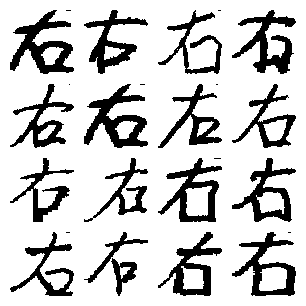 右右右右
右右右右
右右右右
右右右右